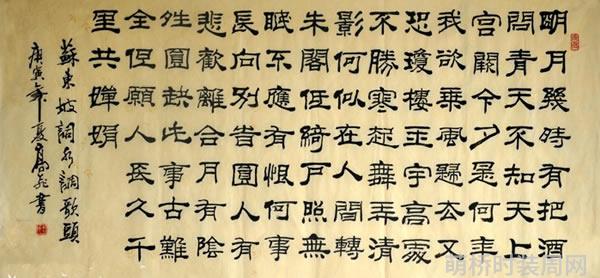 明月幾時有把酒
問青天不知天上
宮闕今夕是何年
我欲乘風歸去又
恐瓊樓玉宇高處
不勝寒起舞弄清
影何似在人間轉
朱閣低綺戶照無
眠不應有恨何事
長向別旹圓人有
悲歡離合月有陰
晴圓缺此事古難
全但願人長久千
里共嬋娟
蘇東坡詞水調歌頭
庚寅年夏 書
萌桥时装周网